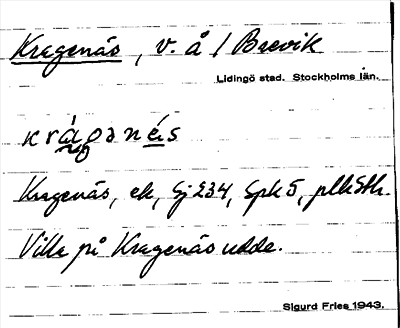 Kragenäs, V. å / Brevik
Lidingö stad. Stockholms län.
Kragenäs, ek, Gj 234, Spk 5, plk Sth.
Villa på Kragenäs udde.
Sigurd Fries 1943.